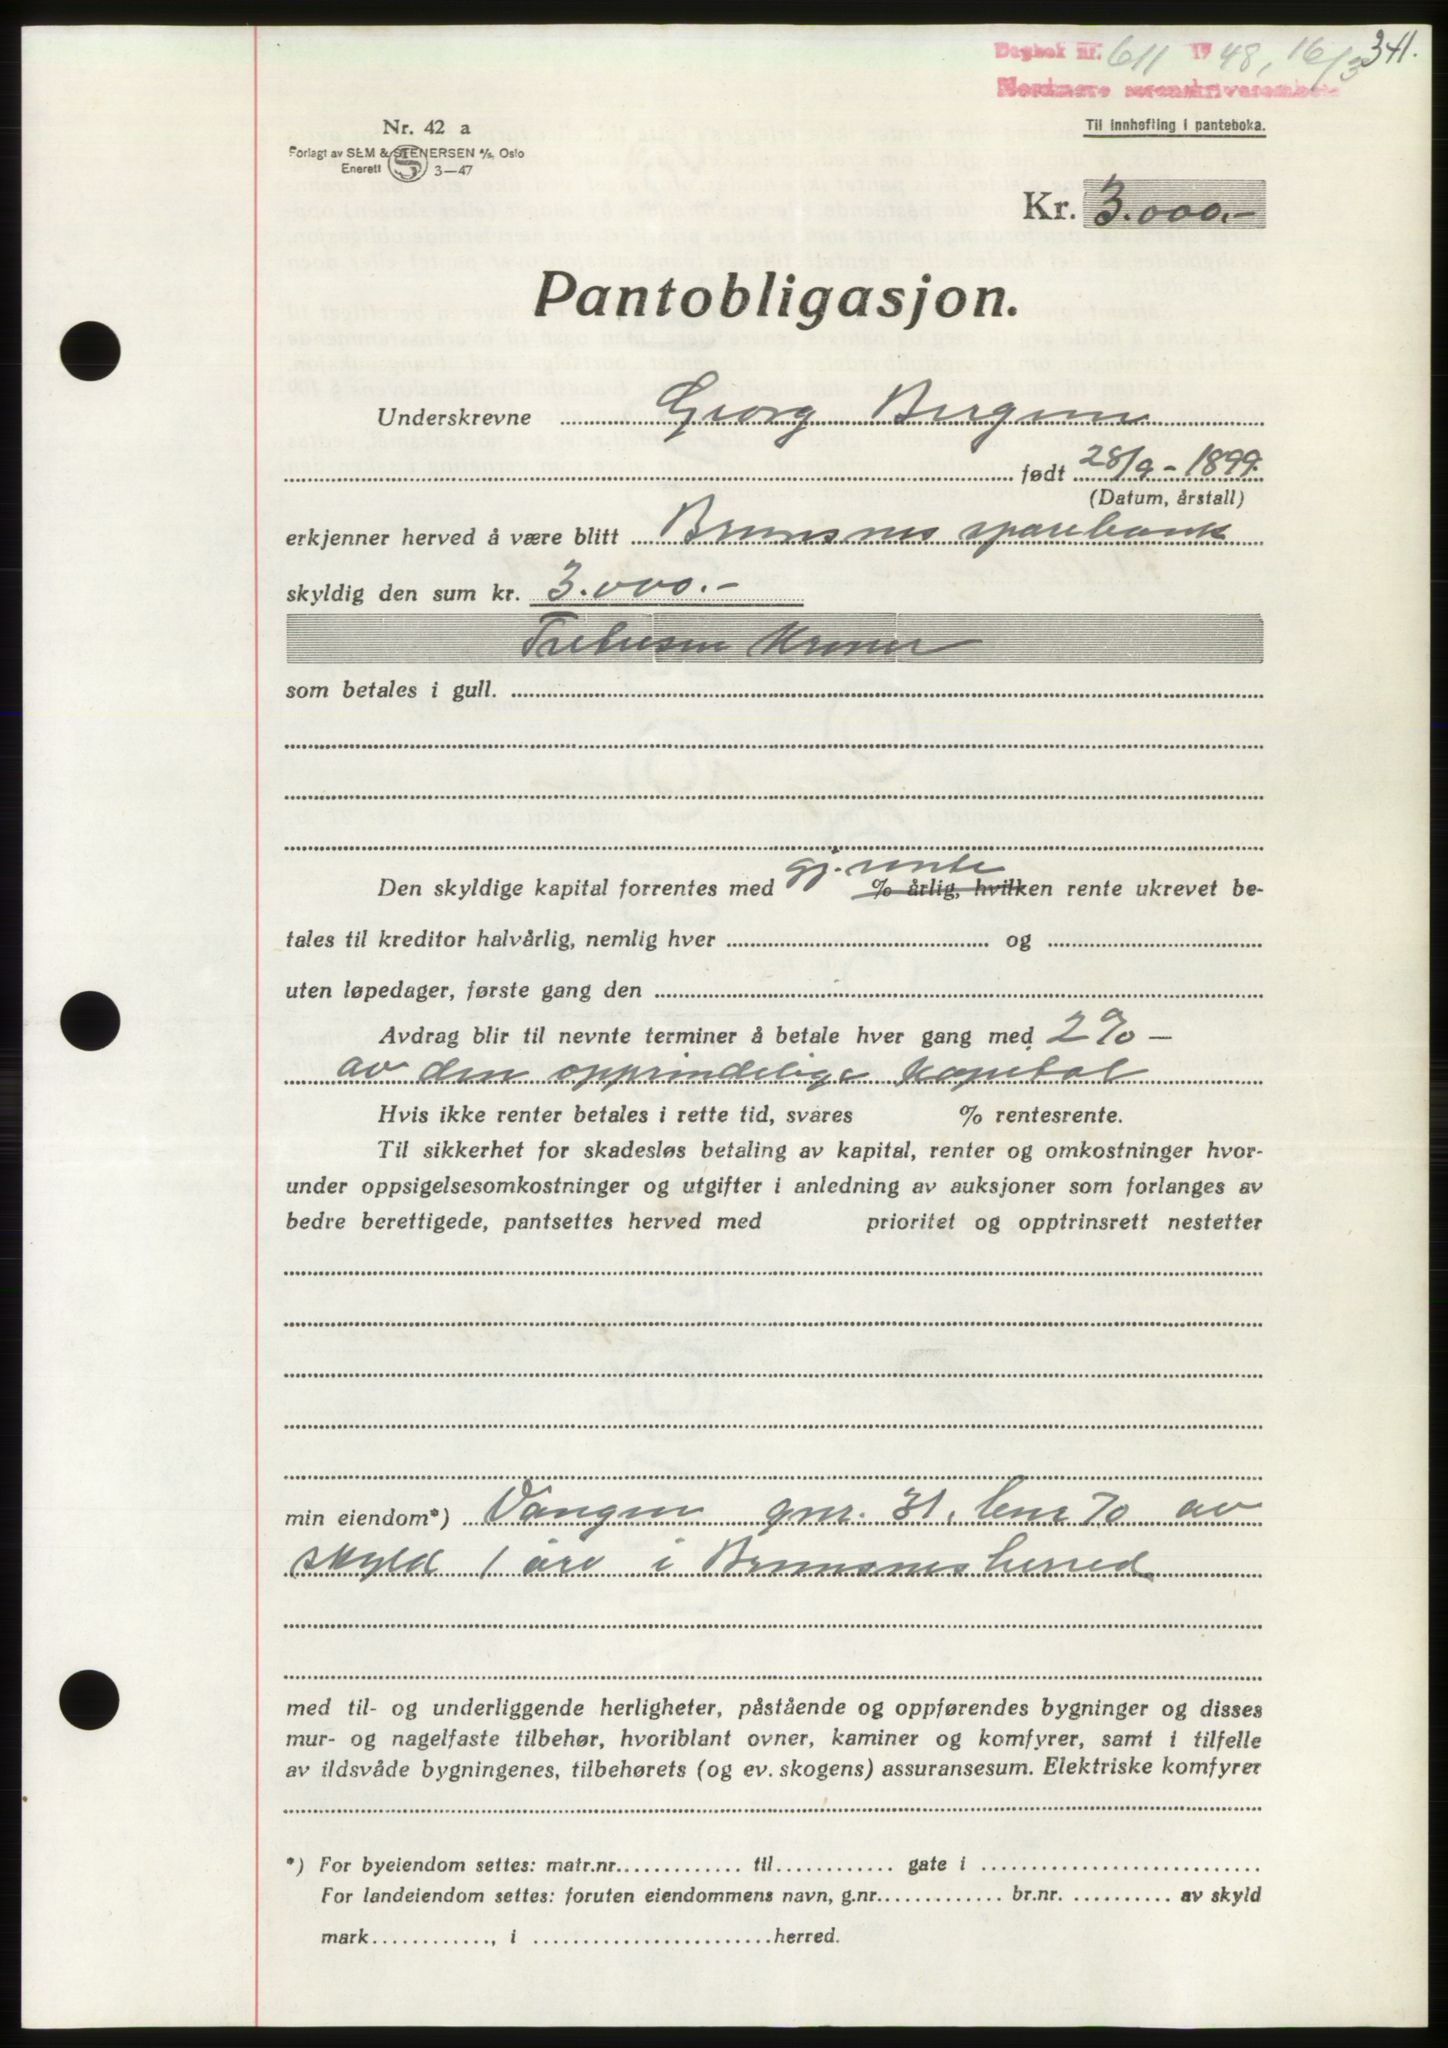 Dagbok nr. 611 19 48, 16/3 341.
Nordmøre sorenskriverembete
Nr. 42 a
Til innhefting i panteboka.
Forlagt av SEM & STENERSEN A/S, Oslo
Enerett S 3—47
Kr. 3.000.-
Pantobligasjon.
Underskrevne Georg Bergum
født 28/9 - 1899.
(Datum, årstall)
erkjenner herved å være blitt Bremsnes sparebank
skyldig den sum kr. 3.000.-
Tretusen Kroner
som betales i gull.
gj. rente
Den skyldige kapital forrentes med % årlig, hvilken rente ukrevet be-
tales til kreditor halvårlig, nemlig hver og
uten løpedager, første gang den
Avdrag blir til nevnte terminer å betale hver gang med 2% —
av den opprindelige kapital
Hvis ikke renter betales i rette tid, svares % rentesrente.
Til sikkerhet for skadesløs betaling av kapital, renter og omkostninger hvor-
under oppsigelsesomkostninger og utgifter i anledning av auksjoner som forlanges av
bedre berettigede, pantsettes herved med prioritet og opptrinsrett nestetter
min eiendom*) Vangen gnr. 31, bnr 70 av
skyld 1 øre i Bremsnes herred
med til- og underliggende herligheter, påstående og oppførendes bygninger og disses
mur- og nagelfaste tilbehør, hvoriblant ovner, kaminer og komfyrer, samt i tilfelle
av ildsvåde bygningenes, tilbehørets (og ev. skogens) assuransesum. Elektriske komfyrer
*) For byeiendom settes: matr.nr. til gate i
For landeiendom settes: foruten eiendommens navn, g.nr. br.nr. av skyld
mark , i herred.